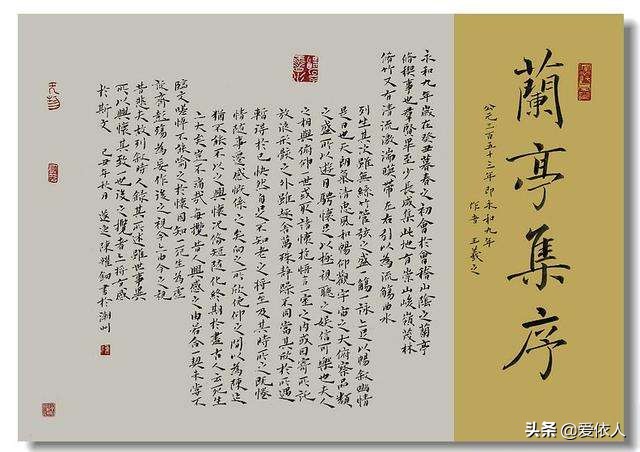 蘭亭集序
公元三百五十三年即永和九年
作者 王羲之
永和九年歲在癸丑暮春之初會於會稽山陰之蘭亭
脩禊事也群賢畢至少長咸集此地有崇山峻嶺茂林
脩竹又有清流激湍映帶左右引以為流觴曲水
列坐其次雖無絲竹管弦之盛一觴一詠亦足以暢敘幽情
是日也天朗氣清惠風和暢仰觀宇宙之大俯察品類
之盛所以遊目騁懷足以極視聽之娛信可樂也夫人
之相與俯仰一世或取諸懷抱悟言一室之內或因寄所託
放浪形骸之外雖趣舍萬殊靜躁不同當其欣於所遇
暫得於己快然自足不知老之將至及其所之既惓
情隨事遷感慨係之矣向之所欣俛仰之間以為陳迹
猶不能不以之興懷況脩短隨化終期於盡古人云死生
亦大矣豈不痛哉每攬昔人興感之由若合一契未嘗不
臨文嗟悼不能喻之於懷固知一死生為虛
誕齊彭殤為妄作後之視今亦由今之視
昔悲夫故列敘時人錄其所述雖世事異
所以興懷其致一也後之攬者亦將有感
於斯文 己丑年秋日 陳耀 書於潮州
头条 @爱依人